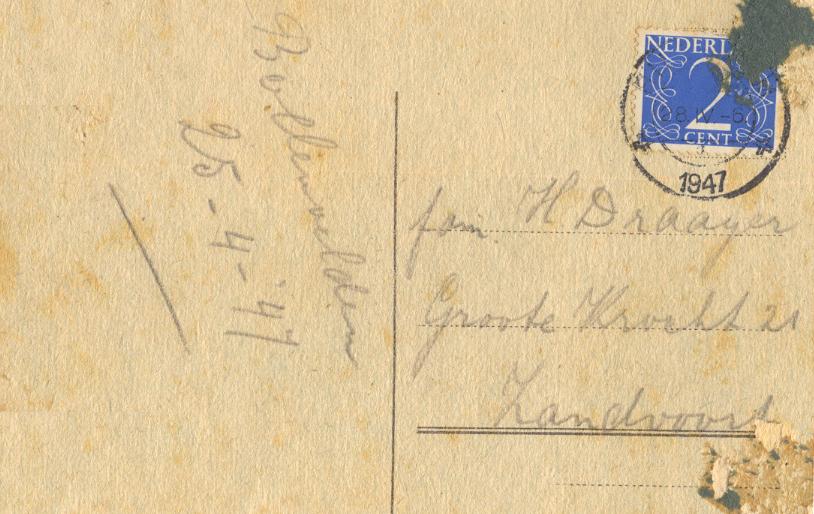 Bollenvelden
25-4-'47
NEDERL
2
CENT
28.IV -6
1947
fam. H Draayer
Groote Krocht 21
Zandvoort